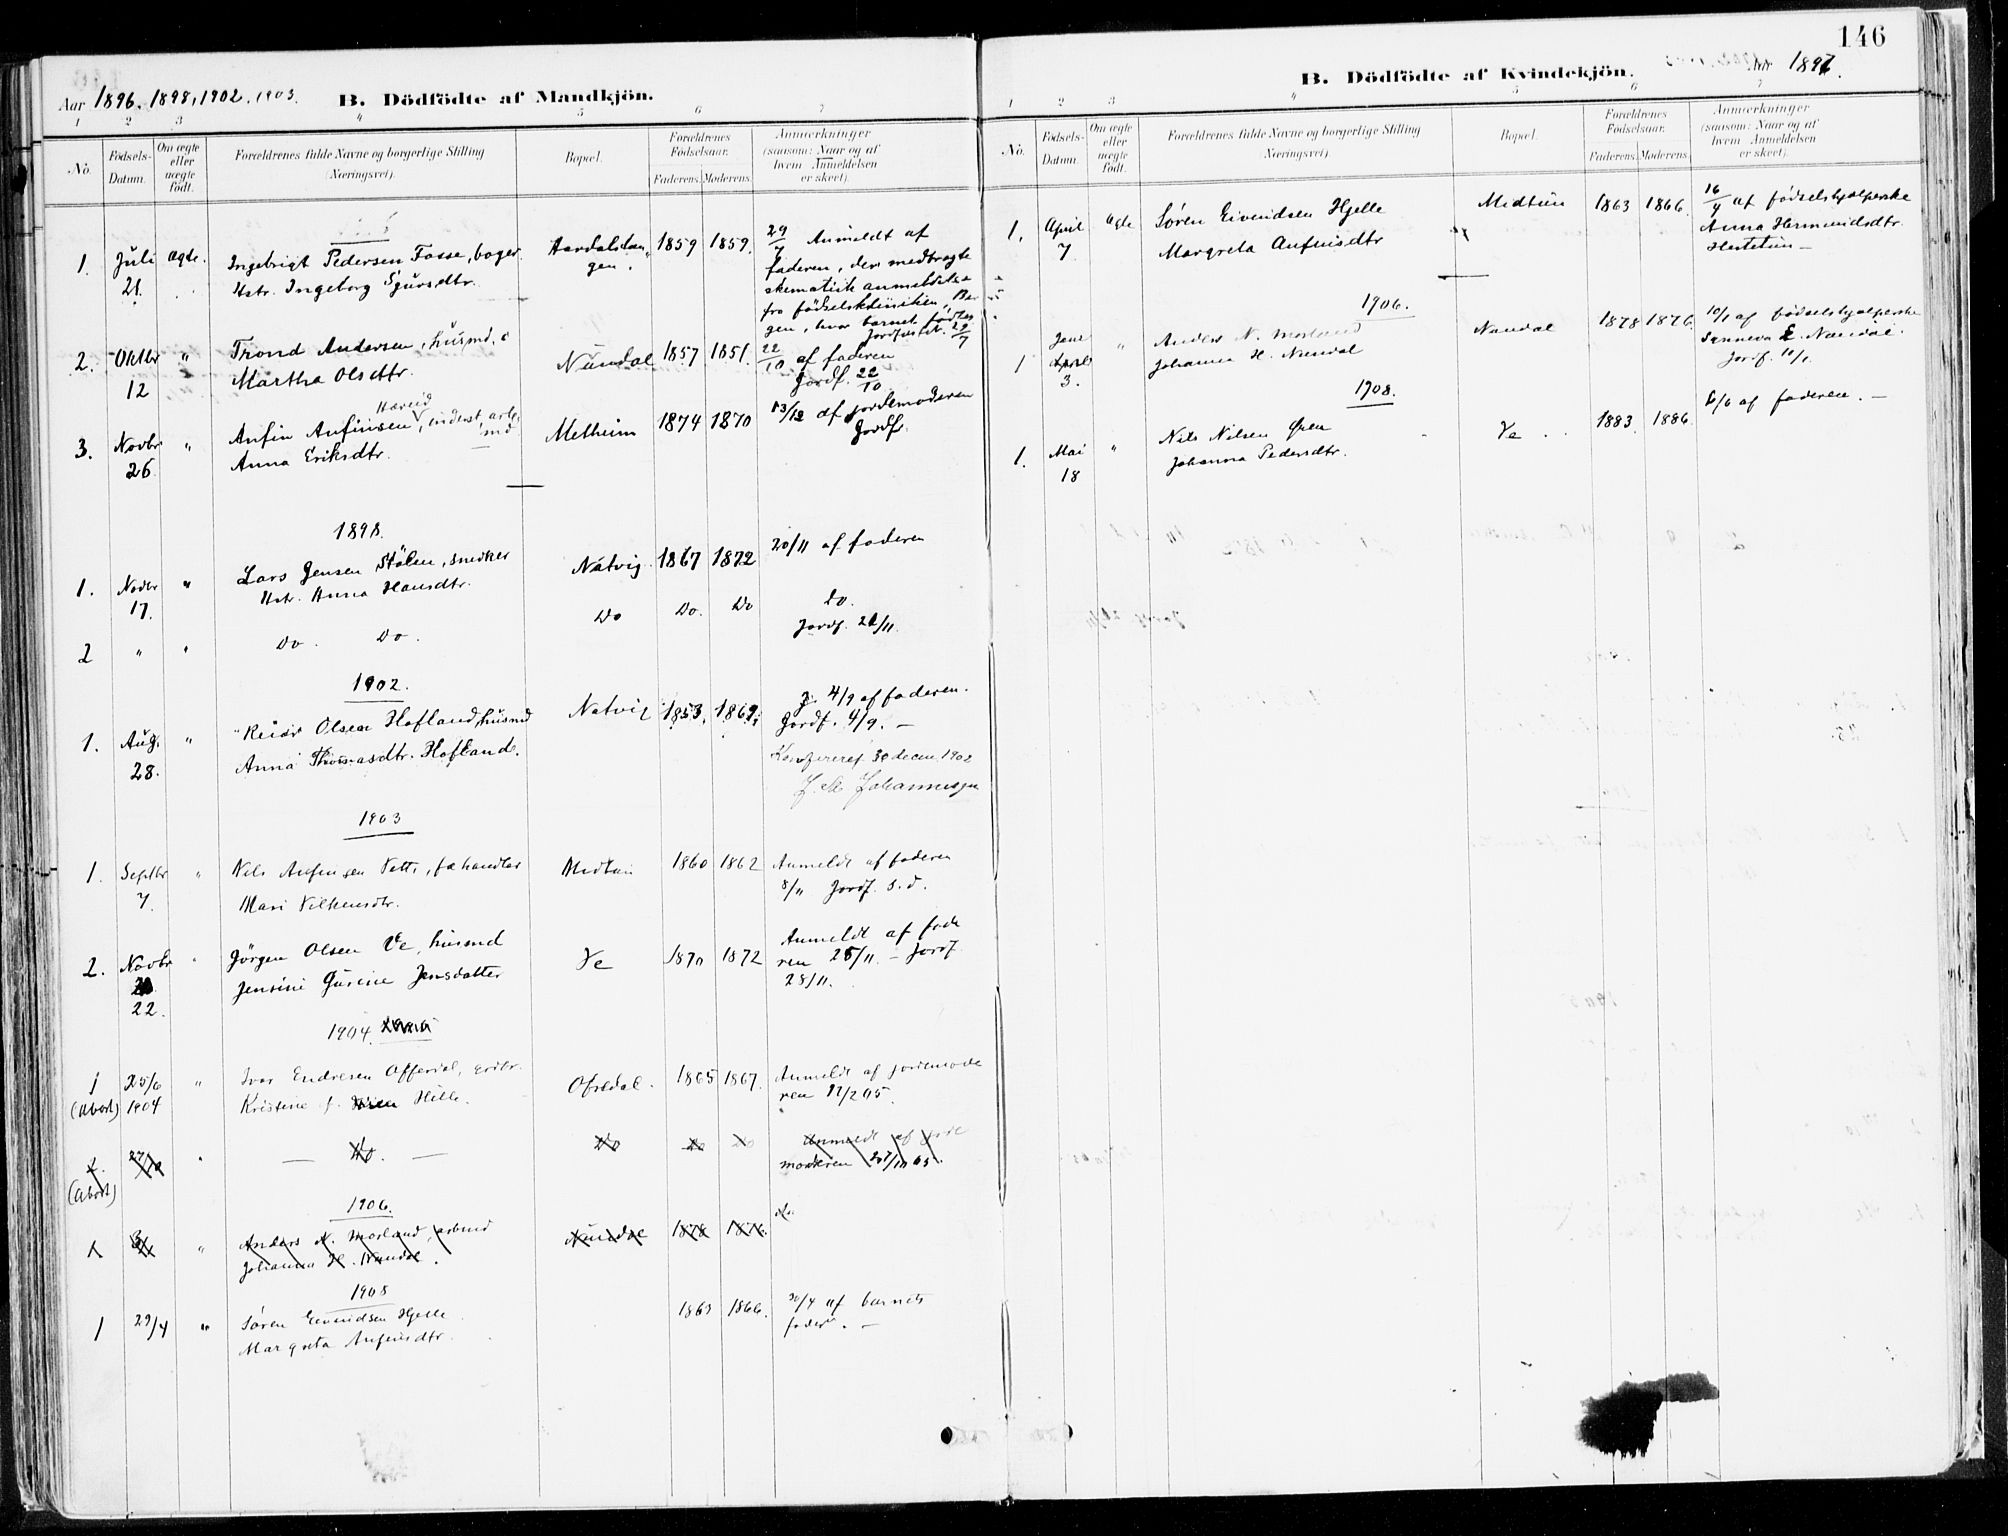 146
Aar 1896, 1898, 1902, 1903. B. Dödfödte af Mandkjön.
1 2 3 4 5 6 7
No. Fødsels-Datum. Om ægte eller uægte født. Forældrenes fulde Navne og borgerlige Stilling (Næringsvei). Bopæl. Forældrenes Fødselsaar. Faderens. Moderens. Anmærkninger (saasom: Naar og af hvem Anmeldelsen er skeet).
1. Juli 21. ægte. Ingebrigt Pedersen Fosse, bager
Hstr. Ingeborg Sjursdtr. Aardalstan-
gen. 1859 1859. 29/7 Anmeldt af
faderen, der medbragte
skematisk anmeldelse
fra fødselskliniken, Ber
gen, hvor barnet fødtes
Jordfæst. 29/7
2. Oktbr 12 " Trond Andersen, husmd. &
Martha Olsdtr. Nundal 1857 1851. 22/10 af faderen
Jordf. 22/10
3. Novbr 26. " Anfin Anfinsen Hæreid, inderst, arb.
md
Anna Eriksdtr. Melheim 1874 1870 13/12 af jordemoderen
Jordf.
1898.
1. Novbr 17. " Lars Jensen Stölen, snedker
Hstr. Anna Hansdtr. Natvig 1867 1872 20/11 af faderen
2 " " Do. Do. Do Do. Do Do.
Jordf. 21/11.
1902.
1. Aug. 28. " Reiar Olsen Hofland, husmd
Anna Thomasdtr. Hofland. Natvig 1853. 1869. 4/9 af faderen.
Jordf. 4/9. —
Konfereret 30 decem. 1902
Johannesen
1903
1. Septbr 7. " Nils Anfinsen Vetti, fæhandler
Mari Vilhemsdtr. Midtun 1860 1862 Anmeldt af faderen
8/11 Jordf. s. d.
2. Novbr 22. " Jörgen Olsen Ve, husmd
Jensine Gurine Jensdatter Ve 1870 1872 Anmeldt af fade
ren 25/11. — Jordf.
28/11.
1904.
1 (abort) 25/6 1904 " Ivar Endresen Offerdal, grdbr.
Kristine f. Hille. Ofredal. 1865 1867. Anmeldt af jordemode
ren 17/2 05.
2. (abort) 27/10 " — Do. — Do Do Do Anmeldt af jorde
moderen 27/10 05.
1906.
1 3/1 " Anders N. Morland, arbmd
Johanna H. Nundal. Nundal 1878 1876.
1908
1 29/4 " Søren Eivindsen Hjelle
Margreta Anfinsdtr. 1863 1866. 30/4 af barnets
fader. —
B. Dödfödte af Kvindekjön. Aar 1897.
1 2 3 4 5 6 7
No. Fødsels-Datum. Om ægte eller uægte født. Forældrenes fulde Navne og borgerlige Stilling (Næringsvei). Bopæl. Forældrenes Fødselsaar. Faderens. Moderens. Anmærkninger (saasom: Naar og af hvem Anmeldelsen er skeet).
1. April 7. ægte Søren Eivindsen Hjelle
Margreta Anfinsdtr Midtun 1863 1866. 16/4 af fødselshjælperske
Anna Hermundsdtr.
Hestetun —
1906.
1 Janr 3. " Anders N. Morland
Johanna H. Nundal Nundal 1878 1876. 10/1 af fødselshjælperske
Sunneva E. Nundal.
Jordf. 10/1.
1908.
1. Mai 18 " Nils Nilsen Øren
Johanna Pedersdtr. Ve 1883 1886 6/6 af faderen. —